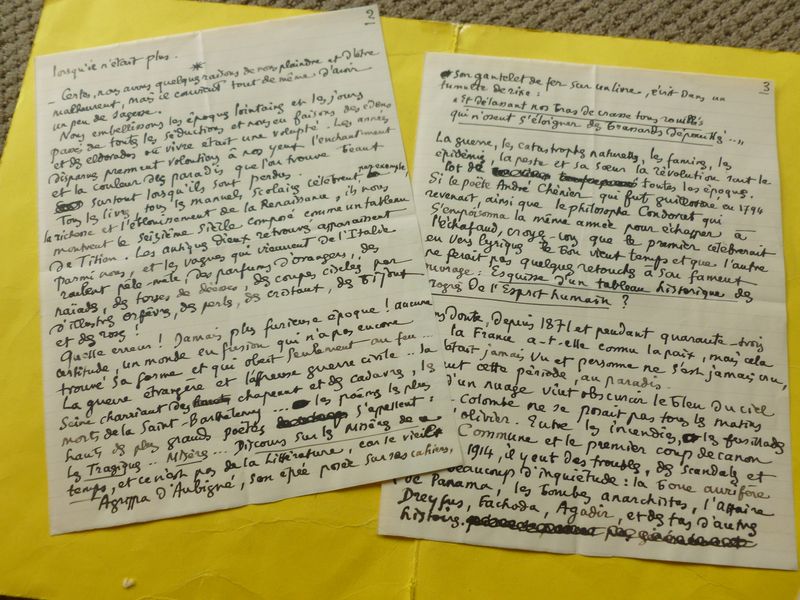 2
lorsqu'il n'était plus.
– Certes, nous avons quelques raisons de nous plaindre et d'être
malheureux, mais il convient tout de même d'avoir
un peu de sagesse.
Nous embellissons les époques lointaines et les jours
passés de toutes les séductions et nous en faisons des édens
et des eldorados où vivre était une volupté. Les années
disparues prennent volontiers à nos yeux l'enchantement
et la couleur des paradis que l'on trouve beaux
surtout lorsqu'ils sont perdus.
Tous les livres, tous les manuels scolaires célèbrent par exemple,
la richesse et l'éblouissement de la Renaissance, ils nous
montrent le seizième siècle composé comme un tableau
de Titien. Les antiques dieux retrouvés apparaissent
parmi nous, et les vagues qui viennent de l'Italie
roulent pêle-mêle, des parfums d'orangers, des
naïades, des torses de déesses, des coupes ciselées par
d'illustres orfèvres, des perles, des cristaux, des bijoux
et des roses !
Quelle erreur ! Jamais plus furieuse époque ! aucune
certitude, un monde en fusion qui n'a pas encore
trouvé sa forme et qui obéit seulement au feu ...
La guerre étrangère et l'affreuse guerre civile ... la
Seine charriant des chapeaux et des cadavres, les
morts de la Saint-Barthélemy ... les poèmes les plus
hauts des plus grands poètes s'appellent :
Les Tragiques ... Misères ... Discours sur les Misères de ce
temps, et ce n'est pas de la littérature, car le vieil
Agrippa d'Aubigné, son épée posée sur ses cahiers,
3
son gantelet de fer sur un livre, écrit dans un
tumulte de rixe :
"Et délassant nos bras de crasse tous rouillés
qui n'osent s'éloigner des brassards dépouillés ..."
La guerre, les catastrophes naturelles, les famines, les
épidémies, la peste et sa sœur la révolution sont le
lot de toutes les époques.
Si le poète André Chénier qui fut guillotiné en 1794
revenait, ainsi que le philosophe Condorcet qui
s'empoisonna la même année pour échapper à
l'échafaud, croyez-vous que le premier célébrerait
en vers lyriques le bon vieux temps et que l'autre
ne ferait pas quelques retouches à son fameux
ouvrage : Esquisse d'un tableau historique des
progrès de l'Esprit humain ?
doute, depuis 1871 et pendant quarante-trois
la France a-t-elle connu la paix, mais cela
était jamais vu et personne ne s'est jamais cru,
cette période, au paradis.
d'un nuage vint obscurcir le bleu du ciel
colombe ne se posait pas tous les matins
olivier. Entre les incendies, les fusillades
Commune et le premier coup de canon
1914, il y eut des troubles, des scandales et
beaucoup d'inquiétude : la boue aurifère
de Panama, les bombes anarchistes, l'affaire
Dreyfus, Fachoda, Agadir, et des tas d'autres
histoires.